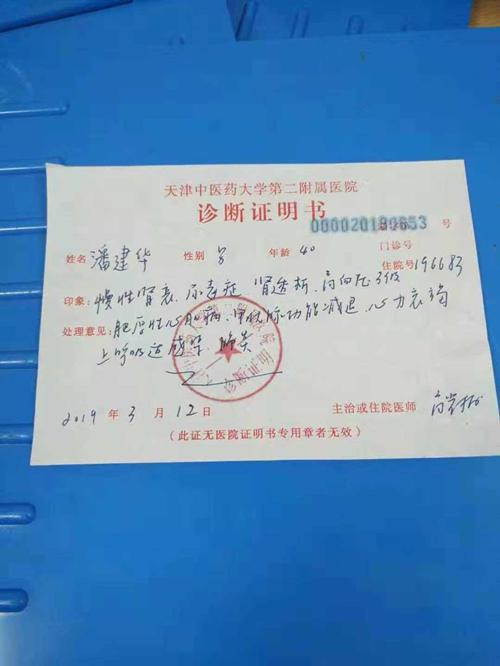 天津中医药大学第二附属医院
诊断证明书 000020190653 号
门诊号
姓名 潘建华 性别 男 年龄 40 住院号 196683
印象: 慢性肾衰、尿毒症 肾透析、高血压3级
处理意见: 肥厚性心肌病、甲状腺功能减退、心力衰竭
上呼吸道感染、肺炎
2019 年 3 月 12 日 主治或住院医师
(此证无医院证明书专用章者无效)